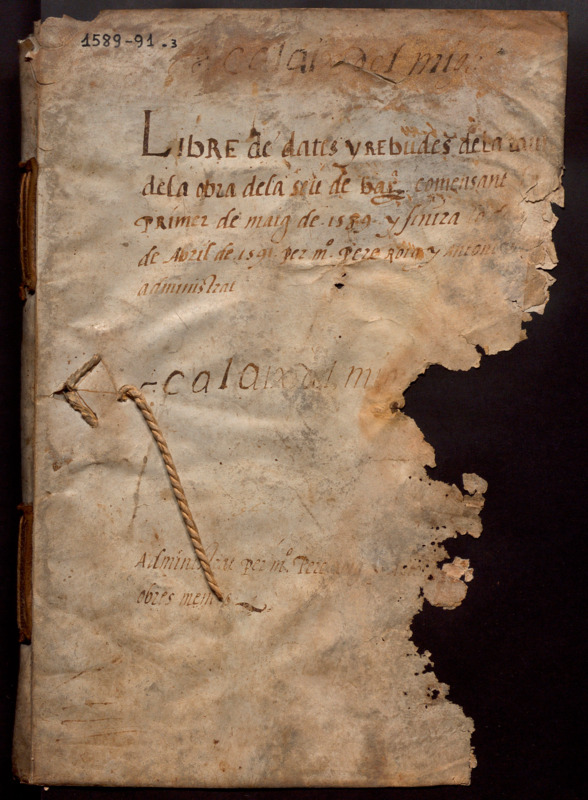 1589-91.3
calaix del mig
LIBRE de dates y REBUDES de la
de la obra de la seu de bar.ª comensant
PRimer de maig de 1589 y finira
de Abril de 1591 per m.º Pere Roig y Antoni
administrat
calaix del mig
Administrat per m.º Pere
obres menos